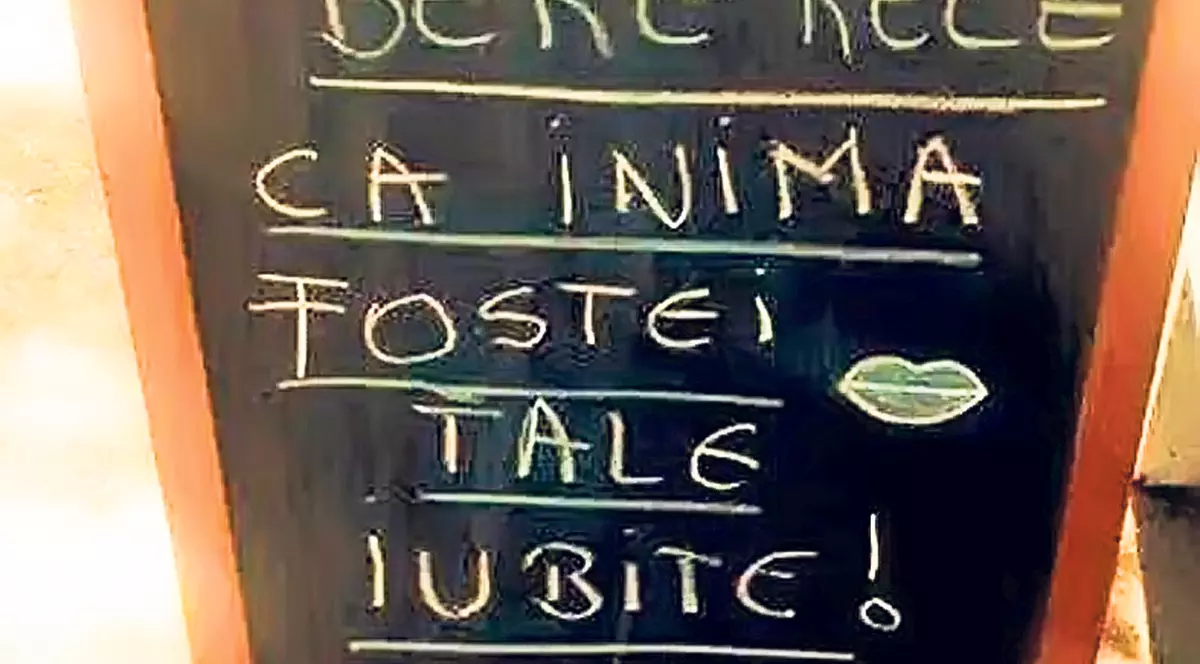 BERE RECE
CA INIMA
FOSTEI
TALE
IUBITE!